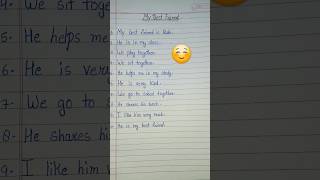 My Best Friend
My best friend is Rubi.
He is in my class.
We play together.
We sit together.
He helps me in my study.
He is very kind.
We go to school together.
He shares his lunch.
I like him very much.
He is my best friend.
4. We sit together
5. He helps me
6. He is very
7. We go to
8. He shares his
9. I like him